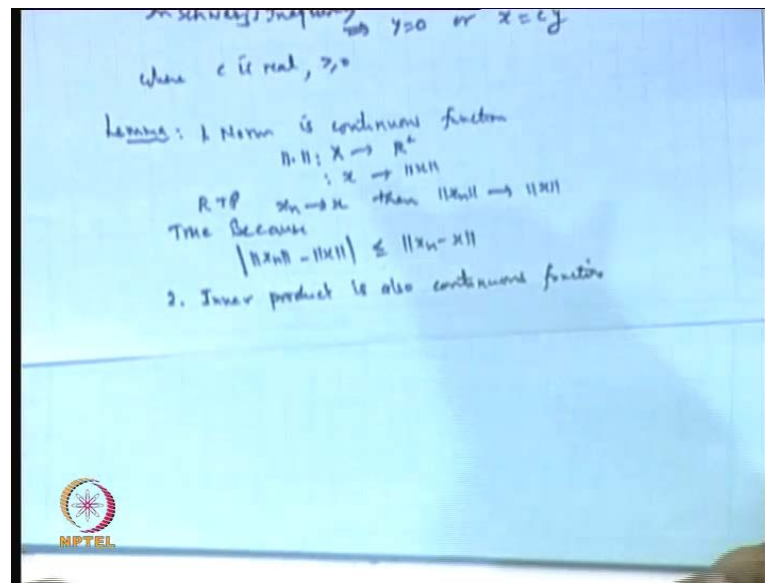 In Schwarz's Inequality ⇒ y=0 or x = cy
where c is real, ≥,0
Lemma: 1 Norm is continuous function
||.||: X → R⁺
: x → ||x||
RTP xₙ → x then ||xₙ|| → ||x||
True Because
| ||xₙ|| - ||x|| | ≤ ||xₙ - x||
2. Inner product is also continuous function
NPTEL